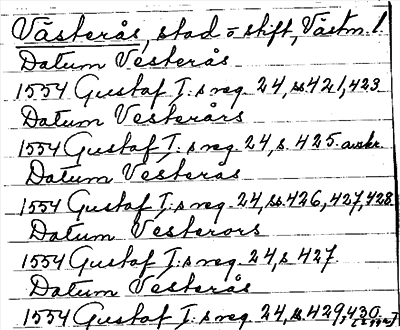 Västerås, stad o stift, Västm. l.
Datum Vesterås
1554 Gustaf I:s reg. 24, ss 421, 423
Datum Vesterårs
1554 Gustaf I:s reg. 24, s. 425. avskr.
Datum Vesterås
1554 Gustaf I:s reg. 24, ss. 426, 427, 428
Datum Vesterors
1554 Gustaf I:s reg. 24, s. 427.
Datum Vesterås
1554 Gustaf I:s reg. 24, s. 429, 430.